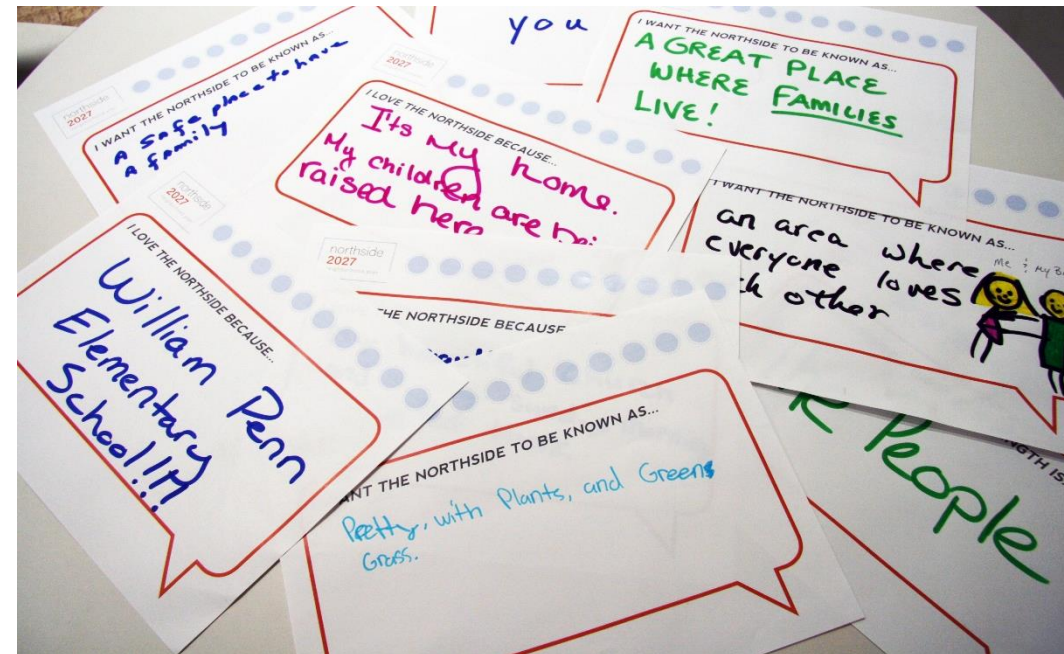 you
I WANT THE NORTHSIDE TO BE KNOWN AS...
A GREAT PLACE
WHERE FAMILIES
LIVE!
northside
2027
I WANT THE NORTHSIDE TO BE KNOWN AS...
A safe place to have
a family
northside
2027
I LOVE THE NORTHSIDE BECAUSE...
It's My home.
My children are bei
raised here
I WANT THE NORTHSIDE TO BE KNOWN AS...
an area where
everyone loves
ch other
Me & My
northside
2027
I LOVE THE NORTHSIDE BECAUSE...
William Penn
Elementary
School!!!!
northside
2027
HE NORTHSIDE BECAUSE
NT THE NORTHSIDE TO BE KNOWN AS...
Pretty, with Plants, and Greens
Grass.
NGTH IS
People